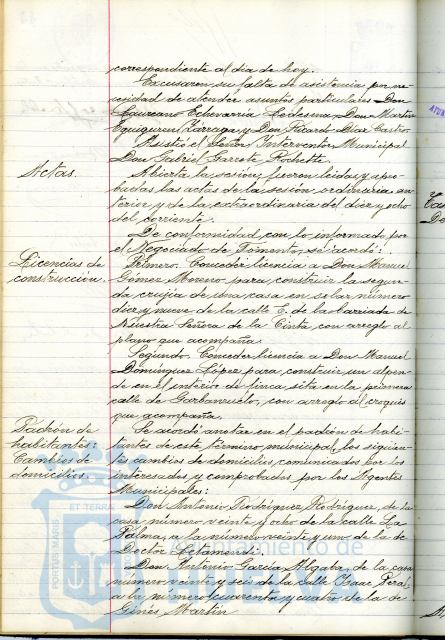 correspondiente al día de hoy.
Excusaron su falta de asistencia por ne-
cesidad de atender asuntos particulares Don
Laureano Echevarría Ledesma, Don Martín
Eguiguren Zarraga y Don Ricardo Díaz Castro.
Asistió el Señor Interventor Municipal
Don Gabriel Garrote Rochette.
Actas.
Abierta la sesión, fueron leidas y apro-
badas las actas de la sesión ordinaria an-
terior y de la extraordinaria del diez y ocho
del corriente.
De conformidad con lo informado por
el Negociado de Fomento, se acordó:
Licencias de
construcción.
Primero. Conceder licencia a Don Manuel
Gómez Moreno para construir la segun-
da crujia de una casa en solar número
diez y nueve de la calle E. de la barriada de
Nuestra Señora de la Cinta con arreglo al
plano que acompaña.
Segundo. Conceder licencia a Don Manuel
Domínguez López para construir un alpen-
de en el interior de finca sita en la primera
calle de Garbanzuelo, con arreglo al croquis
que acompaña.
Padrón de
habitantes:
Cambios de
domicilios.
Se acordó anotar en el padrón de habi-
tantes de este término municipal, los siguien-
tes cambios de domicilio comunicados por los
interesados y comprobados por los Agentes
Municipales:
Don Antonio Rodríguez Rodríguez, de la
casa número veinte y ocho de la calle La
Palma, a la número veinte y uno de la de
Doctor Letamendi.
Don Antonio García, de la casa
número veinte y seis de la calle Isaac Peral,
a la número cuarenta y cuatro de la de
Ginés Martín
PORTUS MARIS ET TERRAE
Ayuntamiento de